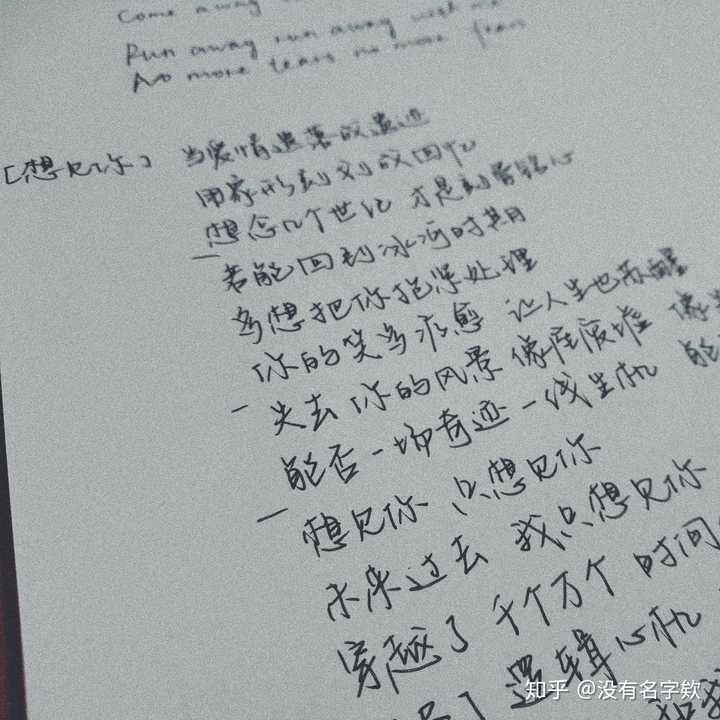 Come away
Run away run away with me
No more tears no more fears
[想见你] 当爱情遗落成遗迹
用象形刻划成回忆
想念几个世纪 才是刻骨铭心
若能回到冰河时期
多想把你抱紧处理
你的笑多疗愈 让人生也苏醒
失去你的风景 像座废墟 像
能否一场奇迹 一线生机 能
想见你 只想见你
未来过去 我只想见你
穿越了 千个万个 时间
了逻辑心机
知乎 @没有名字欸